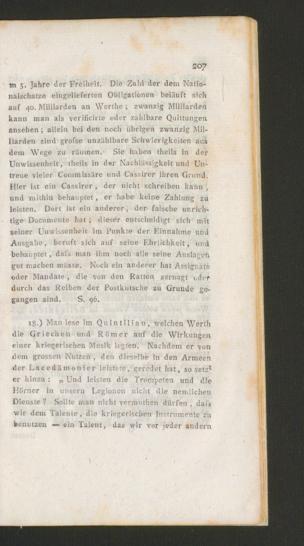 207
m 5. Jahre der Freiheit. Die Zahl der dem Natio-
nalschatze eingelieferten Obligationen beläuft sich
auf 40. Milliarden an Werthe; zwanzig Milliarden
kann man als verificirte oder zahlbare Quittungen
ansehen; allein bei den noch übrigen zwanzig Mil-
liarden sind grosse unzählbare Schwierigkeiten aus
dem Wege zu räumen. Sie haben theils in der
Unwissenheit, theils in der Nachlässigkeit und Un-
treue vieler Commissäre und Cassirer ihren Grund.
Hier ist ein Cassirer, der nicht schreiben kann,
und mithin behauptet, er habe keine Zahlung zu
leisten. Dort ist ein anderer, der falsche unrich-
tige Documente hat; dieser entscheidigt sich mit
seiner Unwissenheit im Punkte der Einnahme und
Ausgabe, beruft sich auf seine Ehrlichkeit, und
behauptet, dass man ihm noch alle seine Auslagen
gut machen müsse. Noch ein anderer hat Assignate
oder Mandate, die von den Ratten zernagt oder
durch das Reiben der Postkutsche zu Grunde ge-
gangen sind. S. 96.
18.) Man lese im Quintilian, welchen Werth
die Griechen und Römer auf die Wirkungen
einer kriegerischen Musik legten. Nachdem er von
dem grossen Nutzen, den dieselbe in den Armeen
der Lacedämonier leistete, geredet hat, so setzt
er hinzu: „Und leisten die Trompeten und die
Hörner in unsern Legionen nicht die nemlichen
Dienste? Sollte man nicht vermuthen dürfen, dass
wie dem Talente, die kriegerischen Instrumente zu
benutzen — ein Talent, das wir vor jeder andern